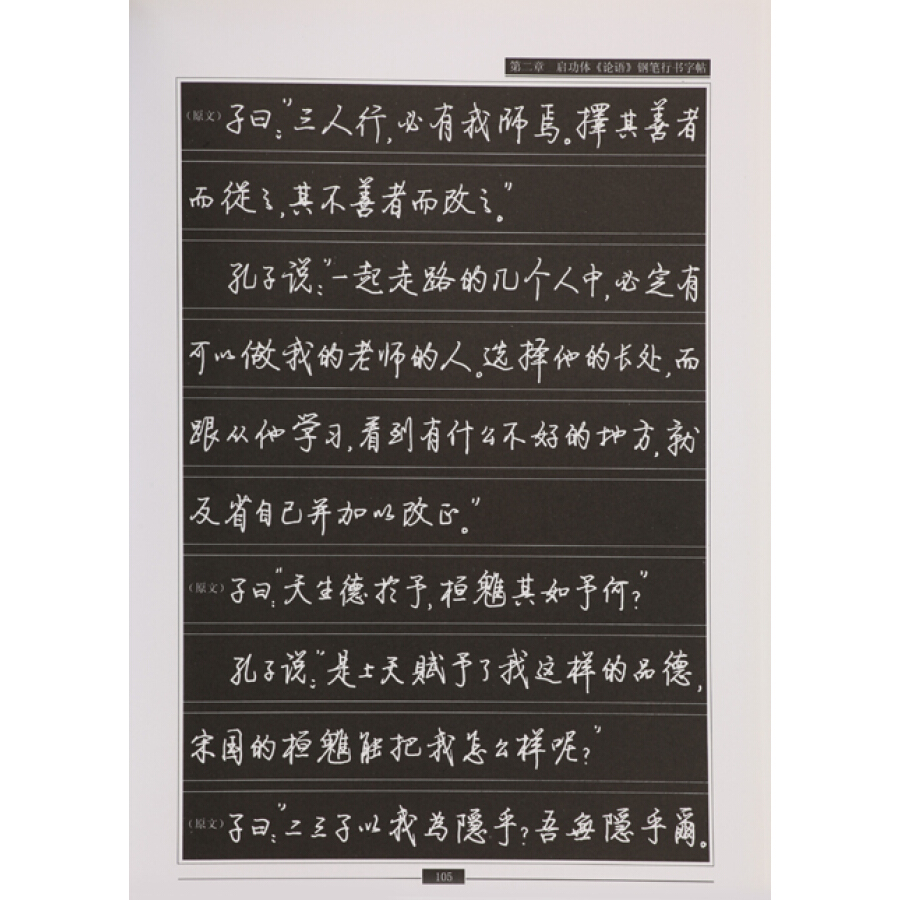 第二章 启功体《论语》钢笔行书字帖
（原文）子曰：“三人行，必有我師焉。擇其善者
而從之，其不善者而改之。”
孔子说：“一起走路的几个人中，必定有
可以做我的老师的人。选择他的长处，而
跟从他学习，看到有什么不好的地方，就
反省自己并加以改正。”
（原文）子曰：“天生德於予，桓魋其如予何？”
孔子说：“是上天赋予了我这样的品德，
宋国的桓魋能把我怎么样呢？”
（原文）子曰：“二三子以我為隱乎？吾無隱乎爾。
105